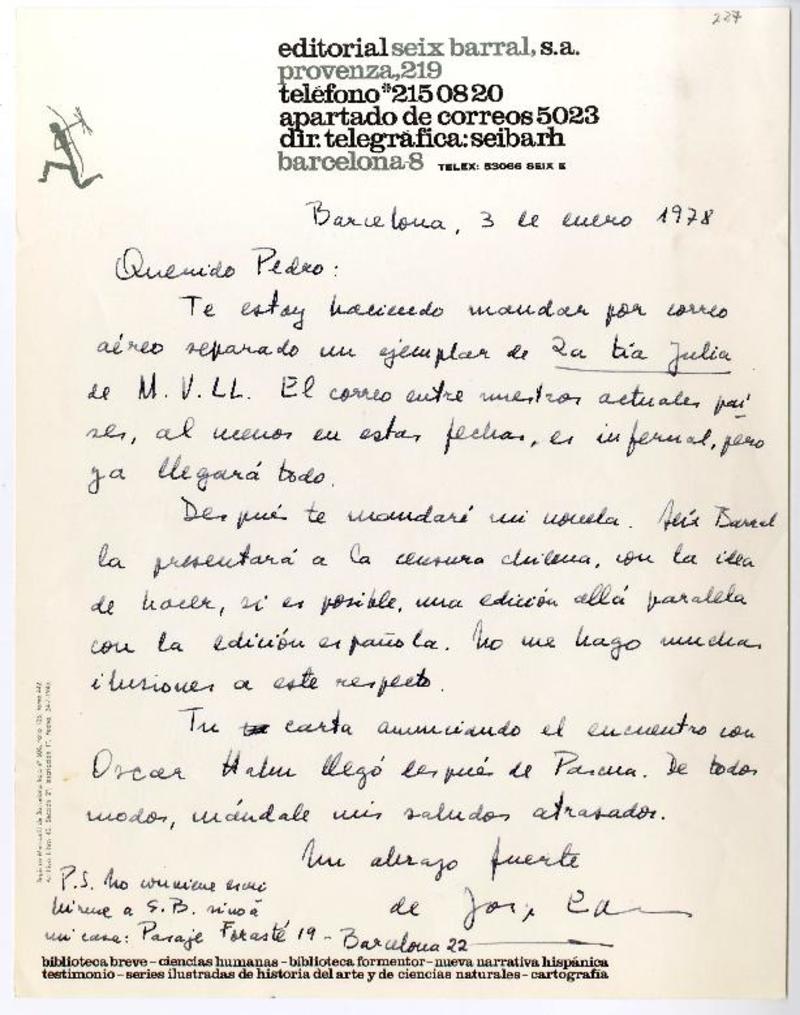 227
editorial seix barral, s.a.
provenza,219
teléfono*2150820
apartado de correos 5023
dir. telegráfica: seibarh
barcelona-8 TELEX: 53066 SEIX E
Barcelona, 3 de enero 1978
Querido Pedro:
Te estoy haciendo mandar por correo
aéreo separado un ejemplar de La tía Julia
de M. V. LL. El correo entre nuestros actuales paí
ses, al menos en estas fechas, es infernal, pero
ya llegará todo.
Después te mandaré mi novela. Seix Barral
la presentará a la censura chilena, con la idea
de hacer, si es posible, una edición allá paralela
con la edición española. No me hago muchas
ilusiones a este respecto.
Tu carta anunciando el encuentro con
Oscar Hahn llegó después de Pascua. De todos
modos, mándale mis saludos atrasados.
Un abrazo fuerte
de Jorge
P.S. No conviene escri
birme a S.B. sino a
mi casa: Pasaje Forasté 19 - Barcelona 22
biblioteca breve - ciencias humanas - biblioteca formentor - nueva narrativa hispánica
testimonio - series ilustradas de historia del arte y de ciencias naturales - cartografía